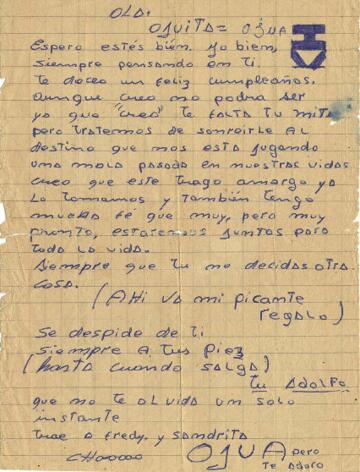 OLA.
OJUITA = OJUA
Espero estés bien. yo bien,
siempre pensando en ti.
te deceo un feliz cumpleaños.
aunque creo no podra ser
ya que "creo" te falta tu mita
pero tratemos de sonreirle al
destino que nos esta jugando
una mala pasada en nuestras vidas
creo que este trago amargo ya
lo tomamos y también tengo
mucha fé que muy, pero muy
pronto, estaremos juntos para
toda la vida.
siempre que tu no decidas otra
cosa.
(AHI VA mi picante
regalo)
Se despide de ti
siempre A tus piez
(hasta cuando salga)
tu Adolfo
que no te olvida un solo
instante
trae a fredy. y sandrita
CHaoooo OJUA pero
te adoro